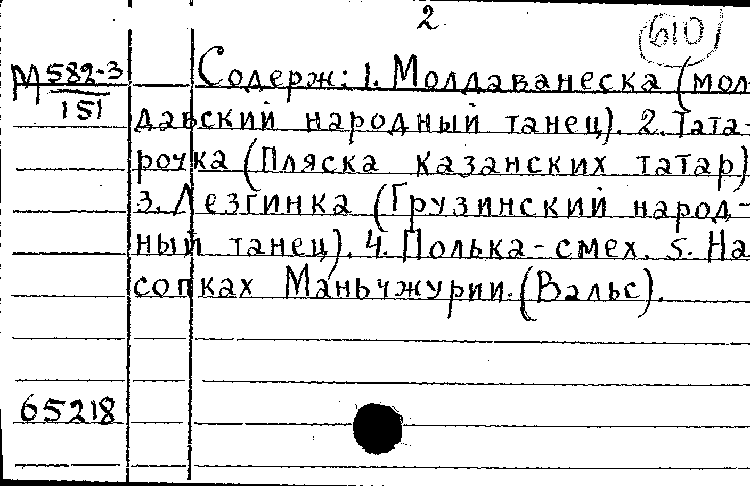 2
610
М 582-3
151
Содерж: 1. Молдаванеска (мол-
давский народный танец). 2. Тата-
рочка (Пляска казанских татар)
3. Лезгинка (Грузинский народ-
ный танец). 4. Полька-смех. 5. На
сопках Маньчжурии. (Вальс).
65218